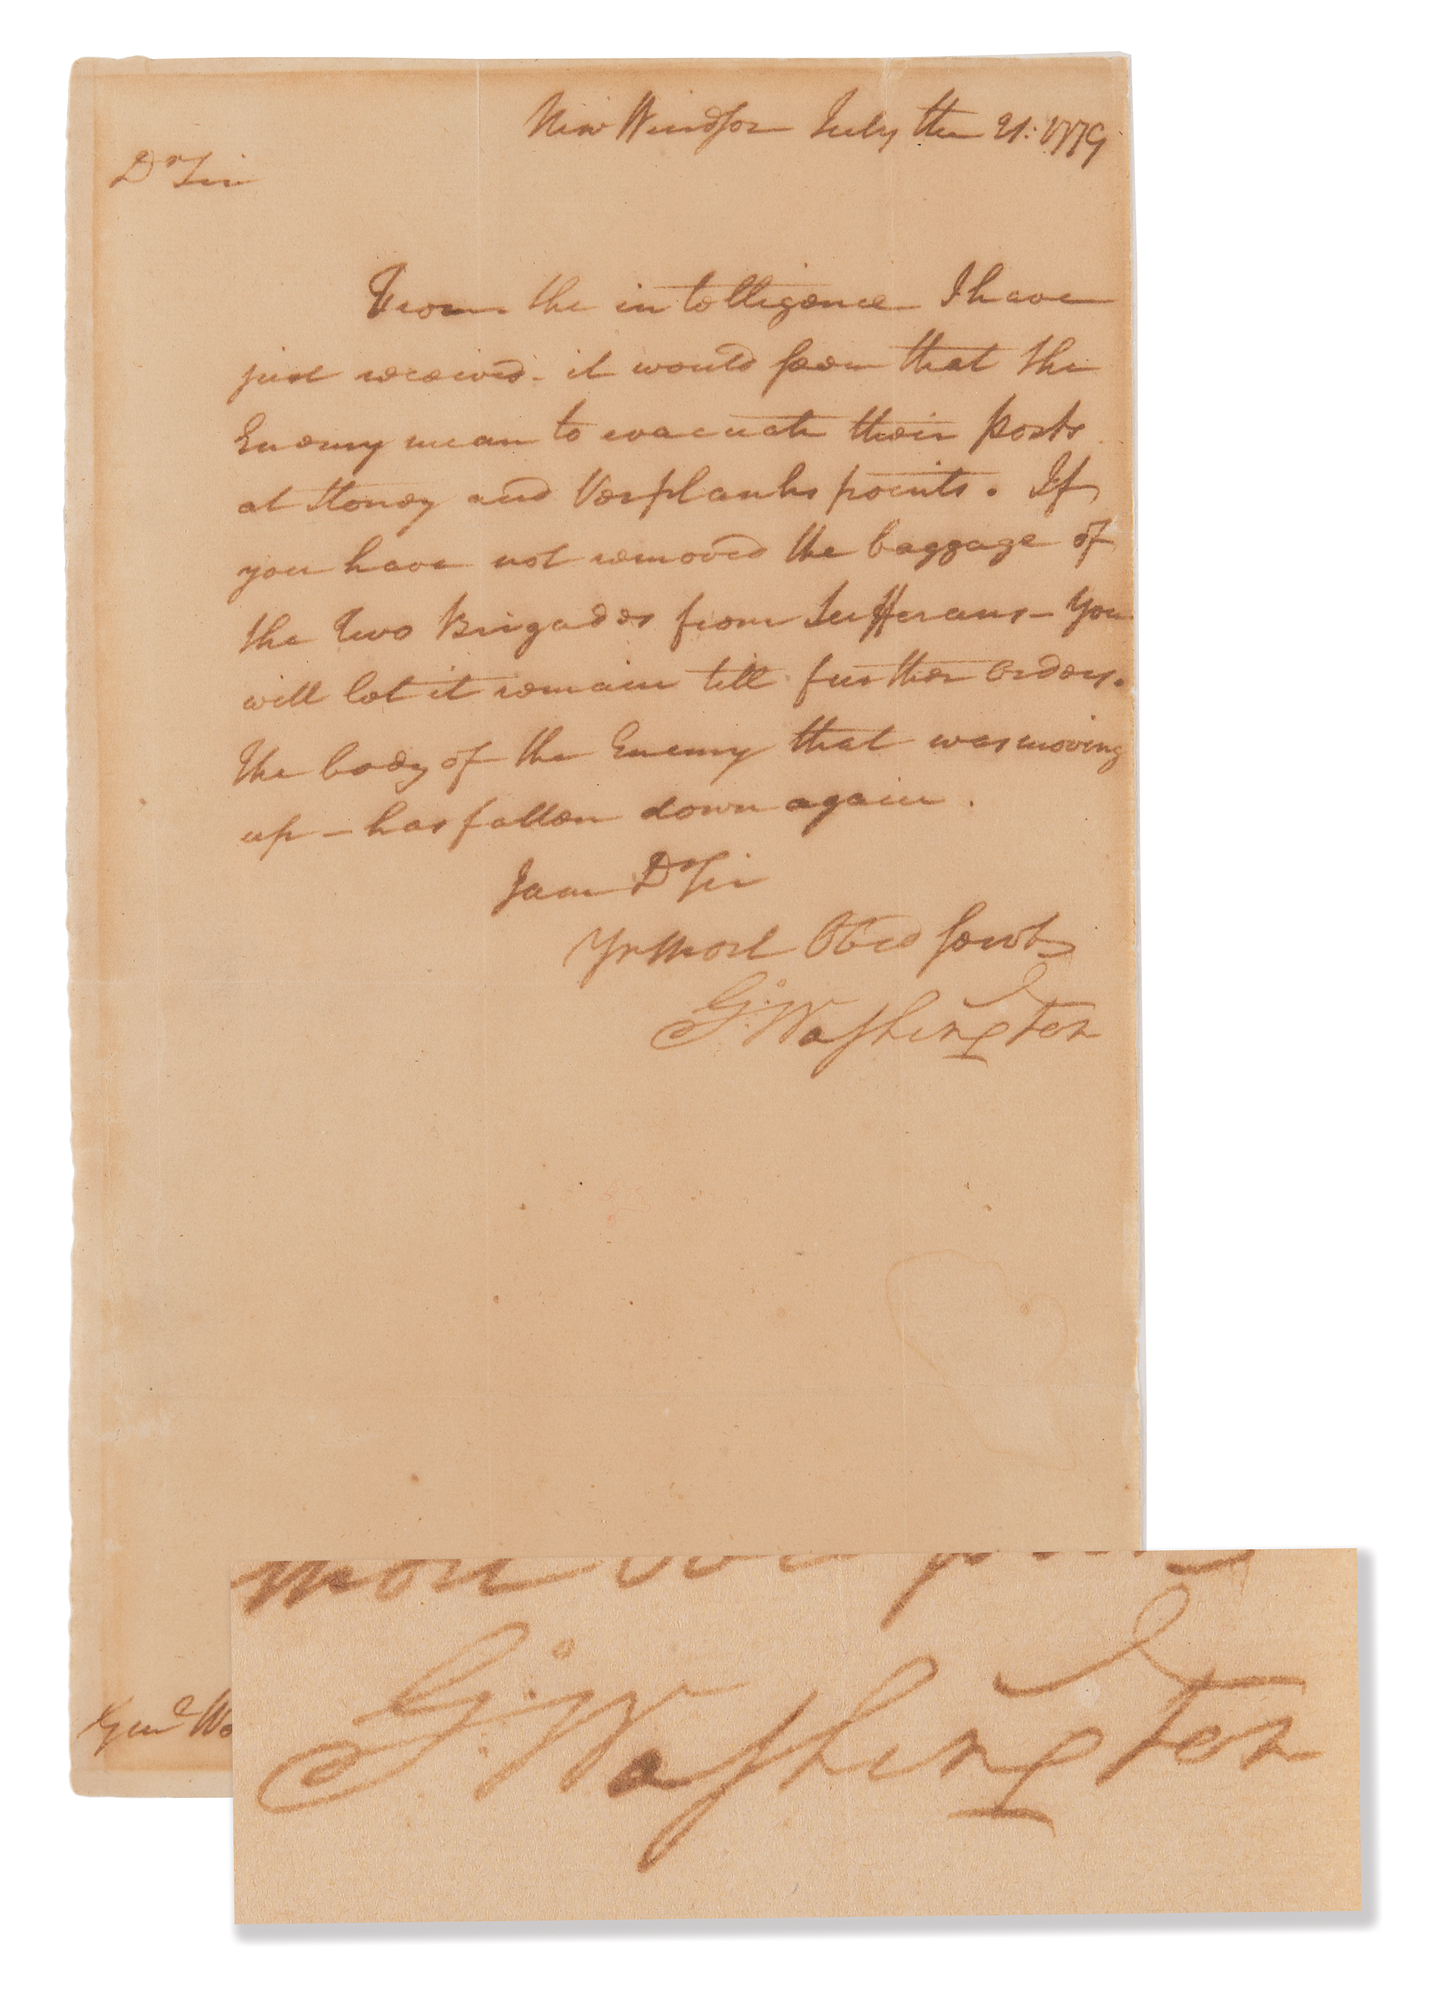 New Windsor July the 21: 1779
Dr Sir
From the intelligence I have
just received. it would seem that the
Enemy mean to evacuate their posts
at Stoney and Verplanks points. If
you have not removed the baggage of
the Two Brigades from Sufferans – You
will let it remain till further orders.
The body of the Enemy that was moving
up – has fallen down again.
I am Dr Sir
Yr most Obed servt
Go: Washington
Genl Wo
most Obed
Go: Washington